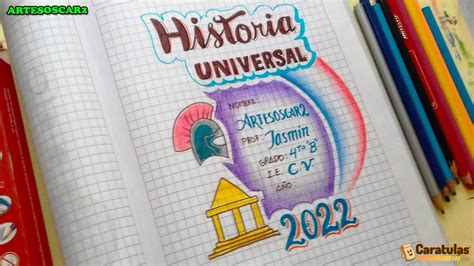 ARTESOSCAR2
Historia
UNIVERSAL
NOMBRE:
ARTESOSCAR2
PROF: Jasmin
GRADO: 4TO "B"
I.E. CV
AÑO:
2022
Caratulas